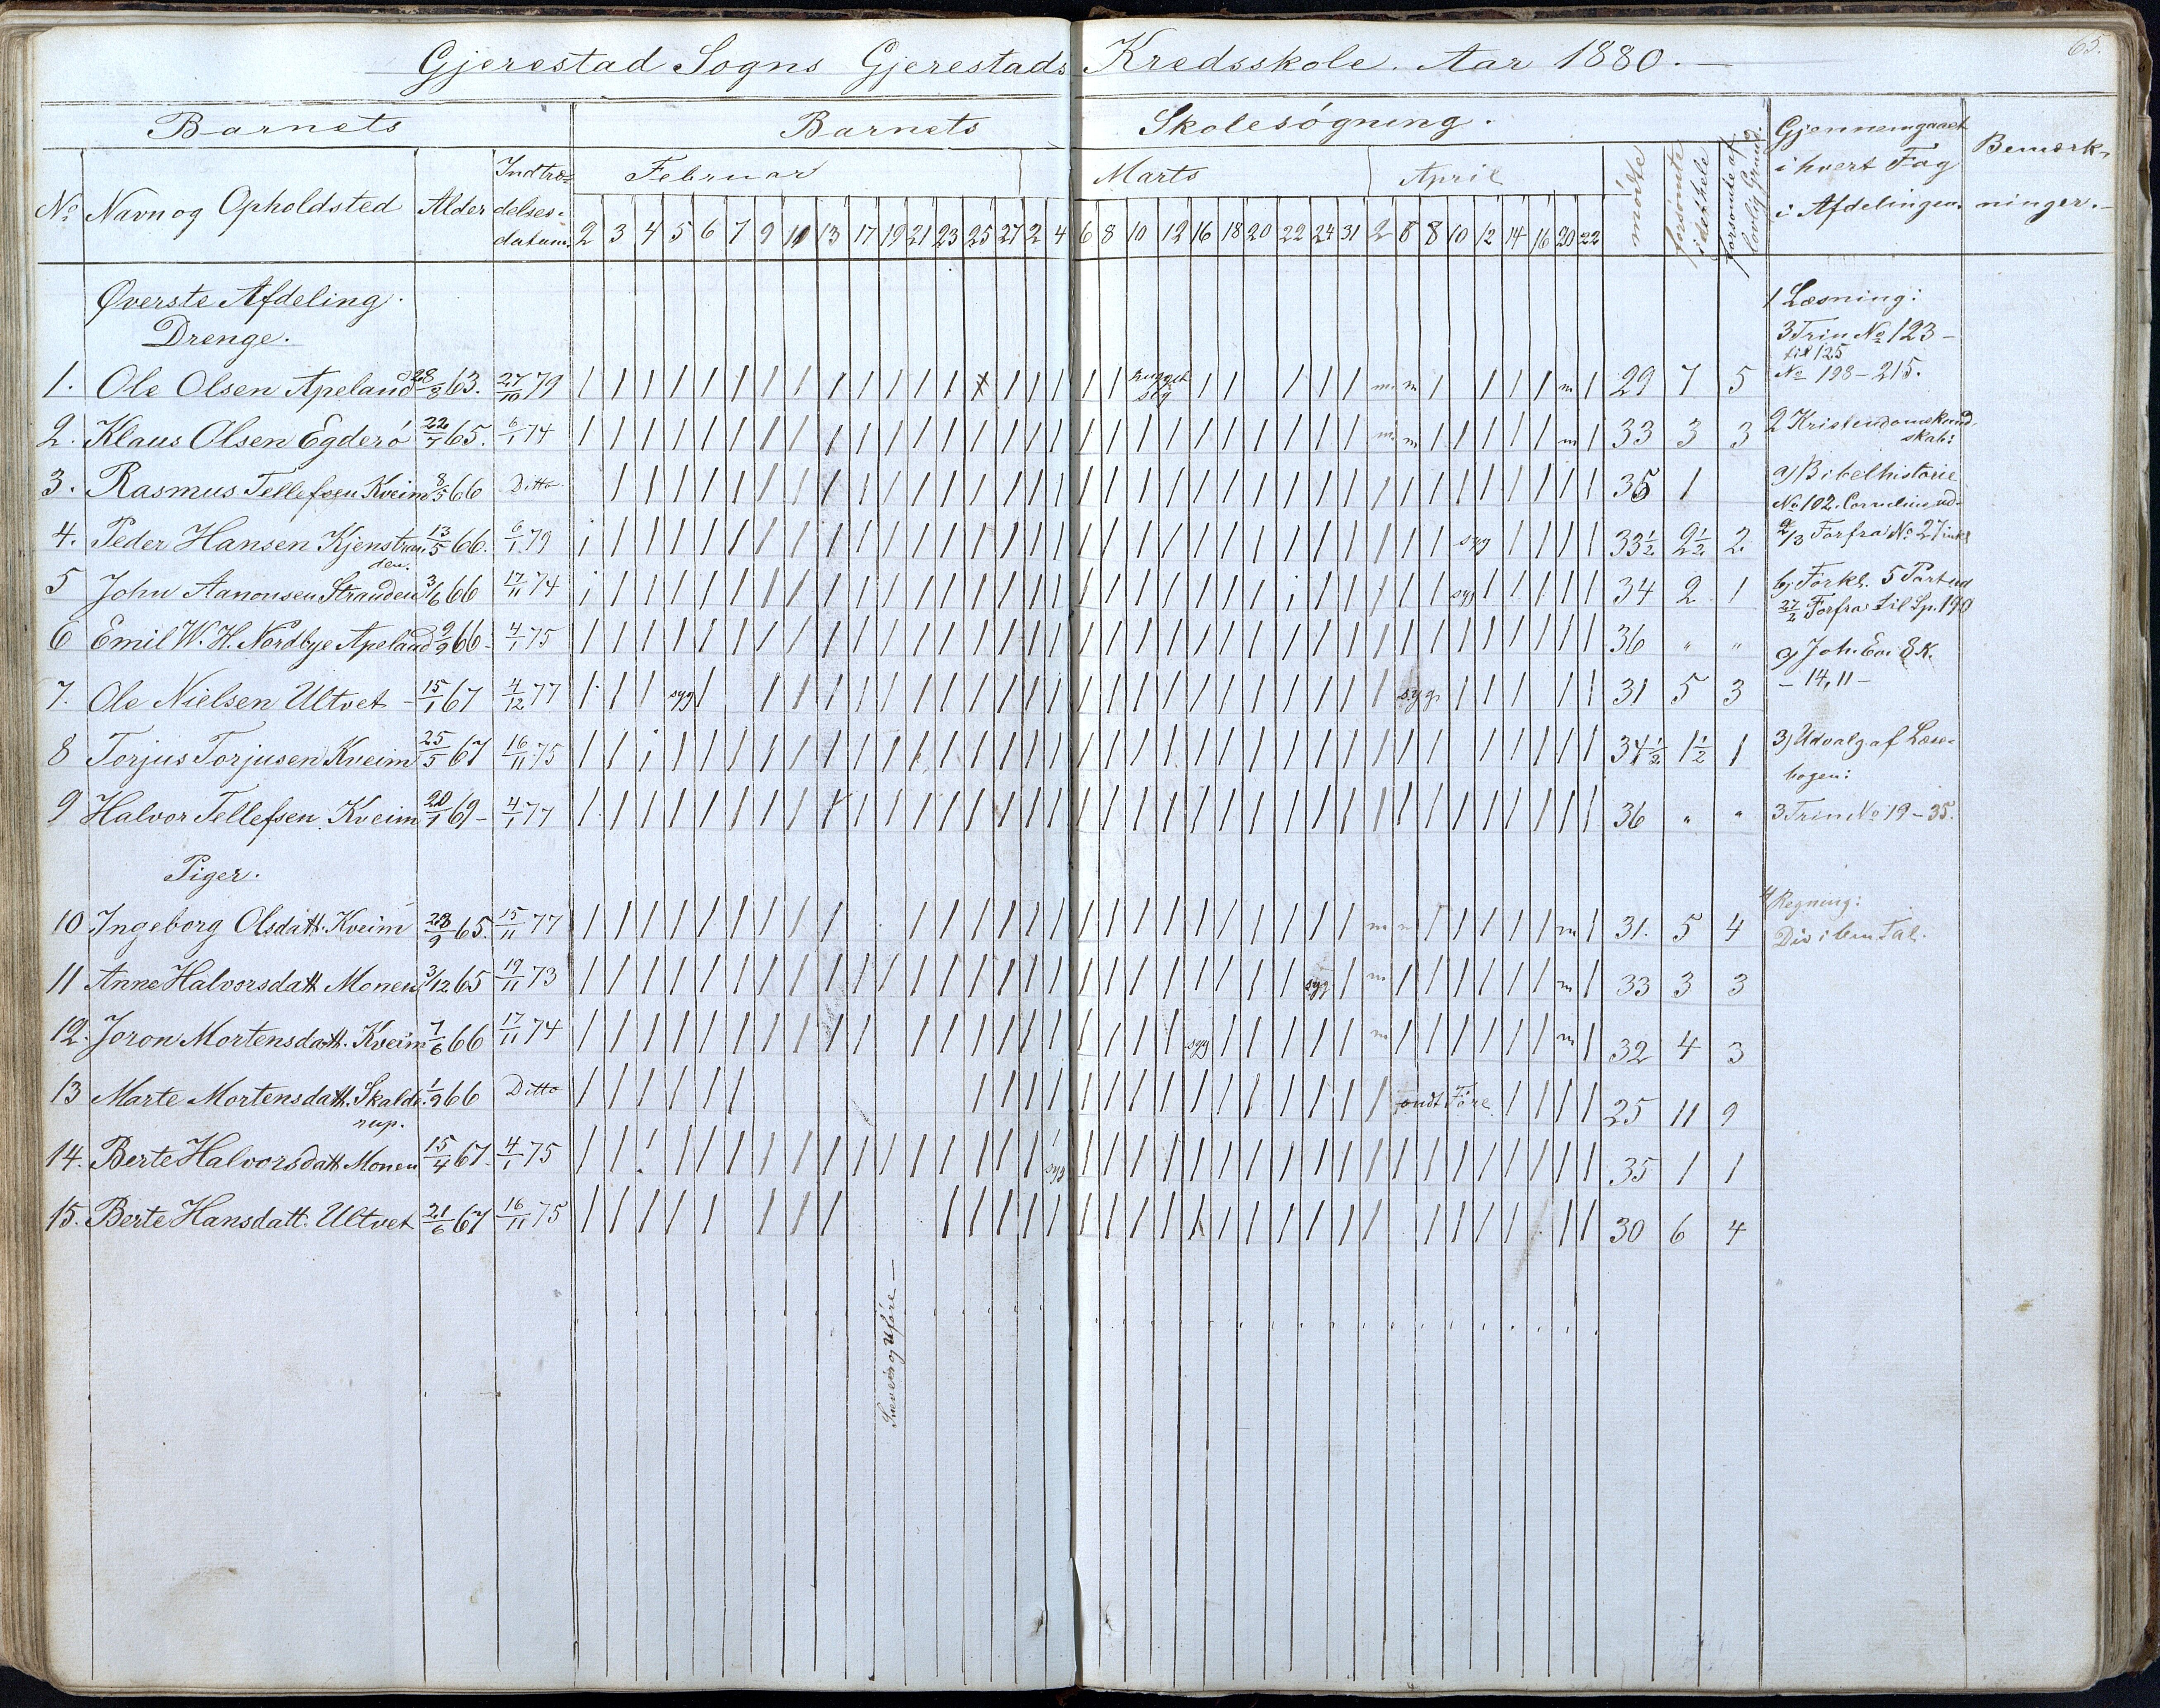 65.
Gjerestad Sogns Gjerestads Kredsskole. Aar 1880.
Barnets Barnets Skolesøgning. Gjennemgaaet i hvert Fag i Afdelingen. Bemærkninger.
No Navn og Opholdsted Alder Indtrædelsesdatum. Februar Marts April mødte forsømte i det hele forsømte af lovlig Grund.
2 3 4 5 6 7 9 11 13 17 19 21 23 25 27 2 4 6 8 10 12 16 18 20 22 24 31 2 6 8 10 12 14 16 20 22
Øverste Afdeling.
Drenge.
1. Ole Olsen Apeland 28/8 63. 27/10 79 hugget sig m m m 29 7 5
2. Klaus Olsen Egderø 22/7 65. 6/1 74 m m m 33 3 3
3. Rasmus Tellefsen Kveim 8/5 66 Ditto 35 1
4. Peder Hansen Kjenstranden. 13/5 66. 6/1 79 syg 33½ 2½ 2.
5 John Aanonsen Stranden 3/6 66 17/11 74 syg 34 2 1
6 Emil W. H. Nordbye Apeland 9/9 66 4/1 75 36 " "
7. Ole Nielsen Ultvet 15/1 67 4/12 77 syg syg. 31 5 3
8 Torjus Torjusen Kveim 25/5 67 16/11 75 34½ 1½ 1
9 Halvor Tellefsen Kveim 20/1 69 4/1 77 36 " "
Piger.
10 Ingeborg Olsdatt. Kveim 28/9 65. 15/11 77 m m m 31. 5 4
11 Anne Halvorsdatt Monen 3/12 65 19/11 73 syg m m 33 3 3
12. Joron Mortensdatt. Kveim 7/6 66 17/11 74 syg m m 32 4 3
13 Marte Mortensdatt. Skalderup. 1/9 66 Ditto ondt Føre 25 11 9
14. Berte Halvorsdatt Monen 15/4 67. 4/1 75 syg 35 1 1
15. Berte Hansdatt. Ultvet 21/6 67 16/11 75 30 6 4
og Uføre
1 Læsning:
3 Trin No 123 –
til 125
No 198 – 215.
2 Kristendomskundskab:
a) Bibelhistorie
No 102. Cornelius ud
2/3 Forfra No 27 inkl
b) Forkl. 5 Part ud
27/2 Forfra til Sp. 190
c) Joh. Ev. 8 K.
– 14, 11 –
3) Udvalg af Læsebogen:
3 Trin No 19 – 35.
4 Regning: